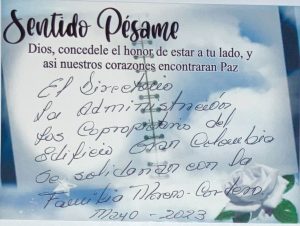 Sentido Pésame
Dios, concedele el honor de estar a tu lado, y
asi nuestros corazones encontraran Paz
El Directorio
La Administración,
Los Copropietarios del
Edificio Gran Colombia
Se solidarizan con la
Familia Moreno-Cordero
Mayo - 2023